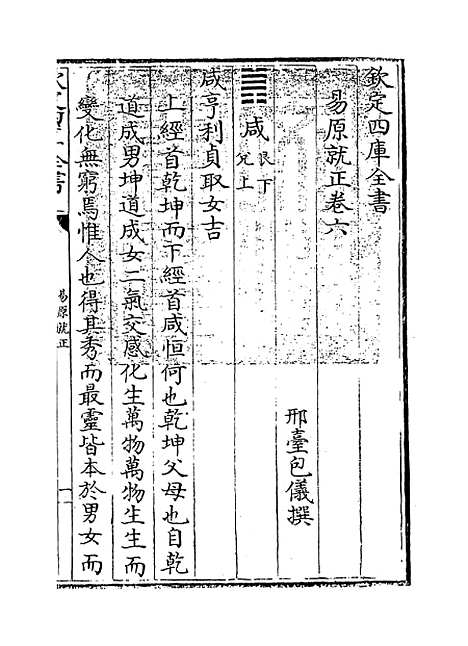 欽定四庫全書
易原就正卷六
邢臺包儀撰
咸艮下兌上
咸亨利貞取女吉
上經首乾坤而下經首咸恒何也乾坤父母也自乾
道成男坤道成女二氣交感化生萬物萬物生生而
變化無窮焉惟人也得其秀而最靈皆本於男女而
易原就正
一